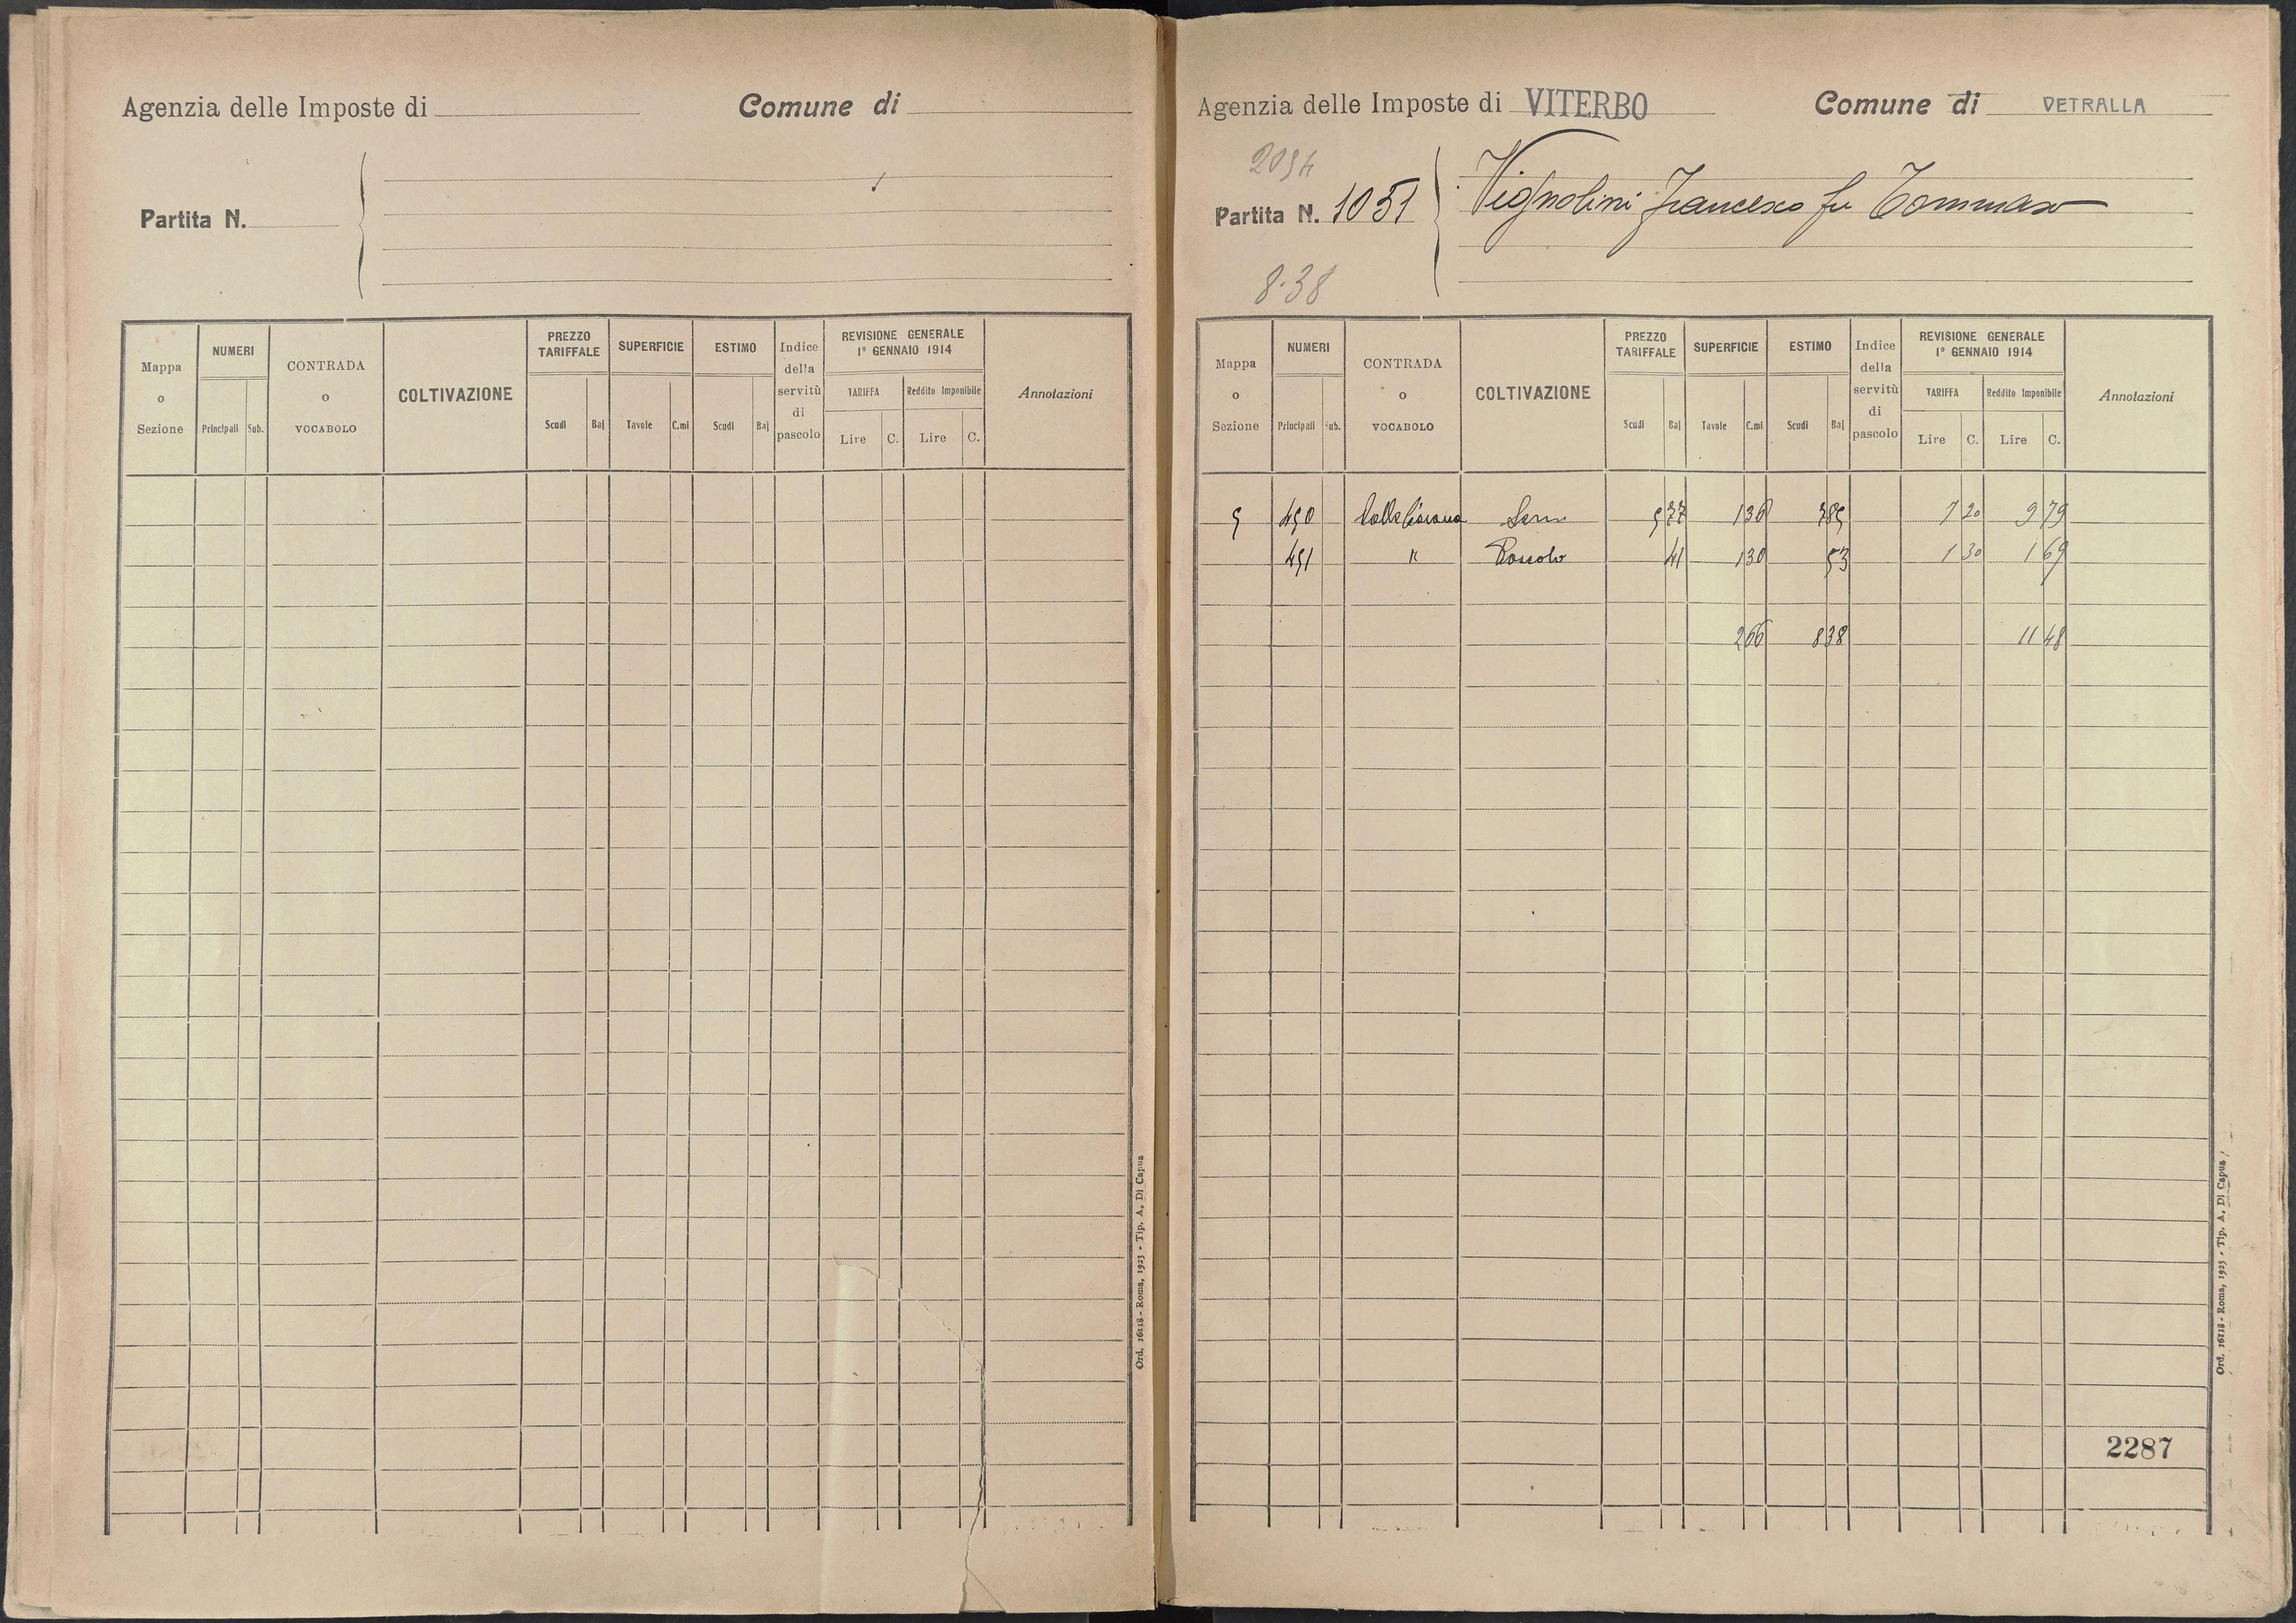 Agenzia delle Imposte di
Comune di
Partita N.
Mappa o Sezione
NUMERI
Principali
Sub.
CONTRADA o VOCABOLO
COLTIVAZIONE
PREZZO TARIFFALE
Scudi
Baj
SUPERFICIE
Tavole
C.mi
ESTIMO
Scudi
Baj
Indice della servitù di pascolo
REVISIONE GENERALE 1° GENNAIO 1914
TARIFFA
Lire
C.
Reddito Imponibile
Lire
C.
Annotazioni
Ord. 16118 - Roma, 1923 - Tip. A. Di Capua
Agenzia delle Imposte di VITERBO
Comune di VETRALLA
2094
Partita N. 1051
Vignolini Francesco fu Tommaso
8.38
Mappa o Sezione
NUMERI
Principali
Sub.
CONTRADA o VOCABOLO
COLTIVAZIONE
PREZZO TARIFFALE
Scudi
Baj
SUPERFICIE
Tavole
C.mi
ESTIMO
Scudi
Baj
Indice della servitù di pascolo
REVISIONE GENERALE 1° GENNAIO 1914
TARIFFA
Lire
C.
Reddito Imponibile
Lire
C.
Annotazioni
5 490 Sem 5 77 1 36 7 85 7 20 9 79
491 " 41 1 30 53 1 30 1 69
2 66 8 38 11 48
2287
Ord. 16118 - Roma, 1923 - Tip. A. Di Capua